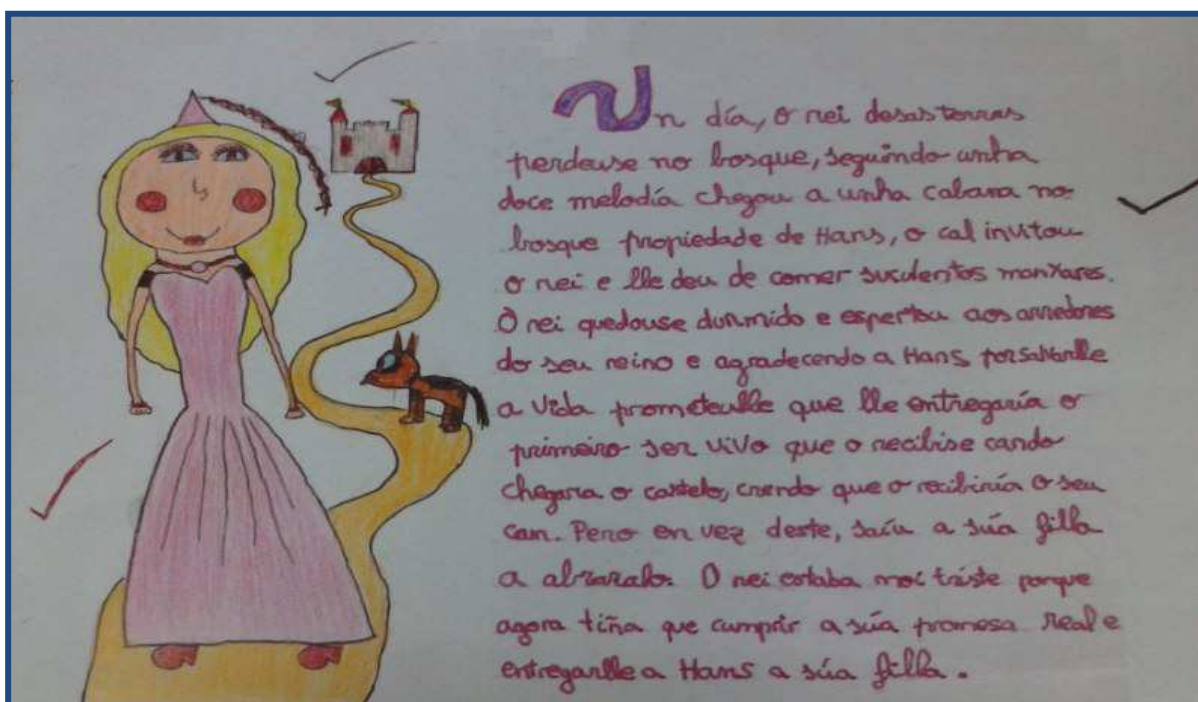 Un día, o rei desas terras
perdeuse no bosque, seguindo unha
doce melodía chegou a unha cabana no
bosque propiedade de Hans, o cal invitou
o rei e lle deu de comer suculentos manxares.
O rei quedouse durmido e espertou aos arredores
do seu reino e agradecendo a Hans por salvarlle
a vida prometeulle que lle entregaría o
primeiro ser vivo que o recibise cando
chegara o castelo, crendo que o recibiría o seu
can. Pero en vez deste, saíu a súa filla
a abrazalo. O rei estaba moi triste porque
agora tiña que cumprir a súa promesa real e
entregarlle a Hans a súa filla.